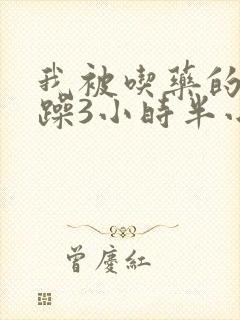 我被喫藥的
躁3小時半小
曾慶紅